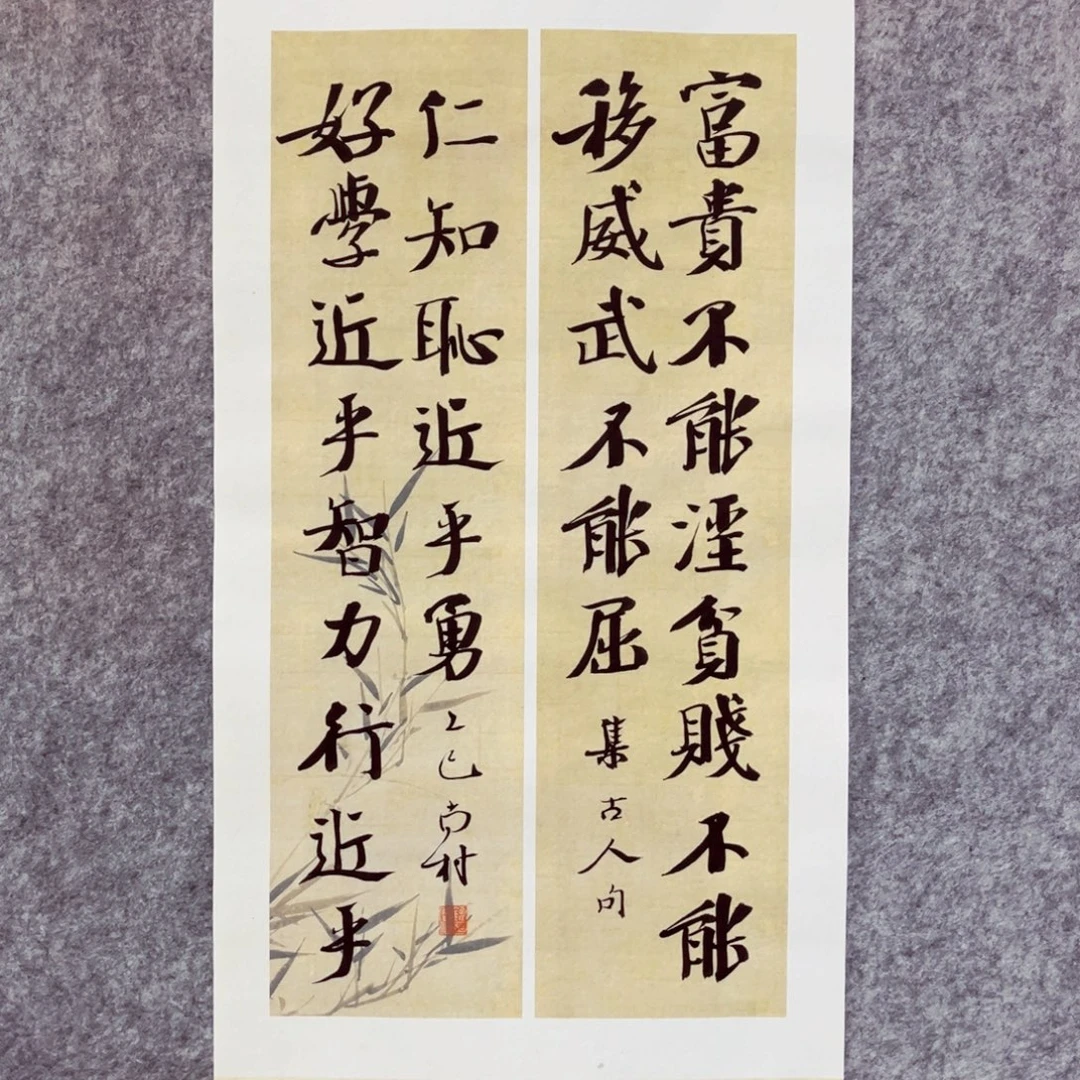 富貴不能淫貧賤不能
移威武不能屈
集古人句
好學近乎智力行近乎
仁知恥近乎勇
乙巳尚村